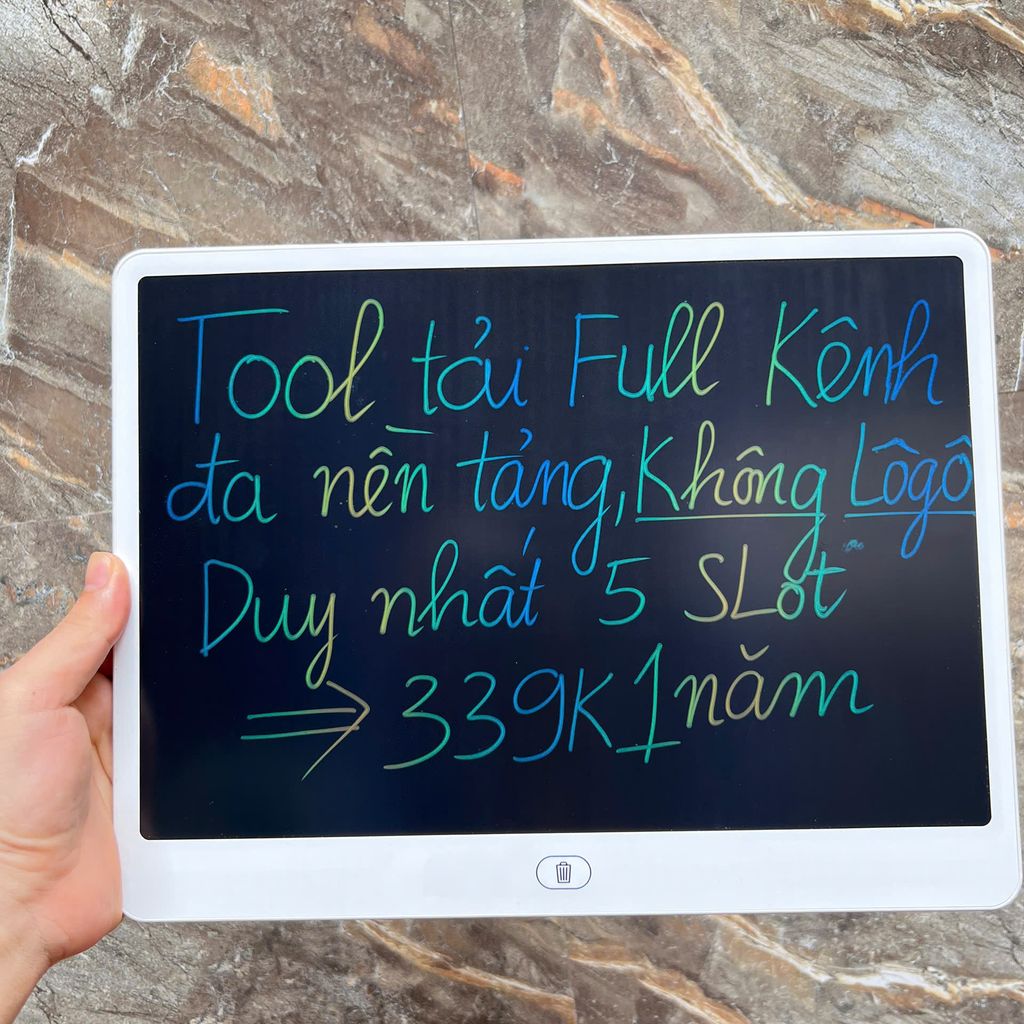 Tool tải Full Kênh
đa nền tảng, Không Lôgô
Duy nhất 5 SLot
=> 339K 1 năm